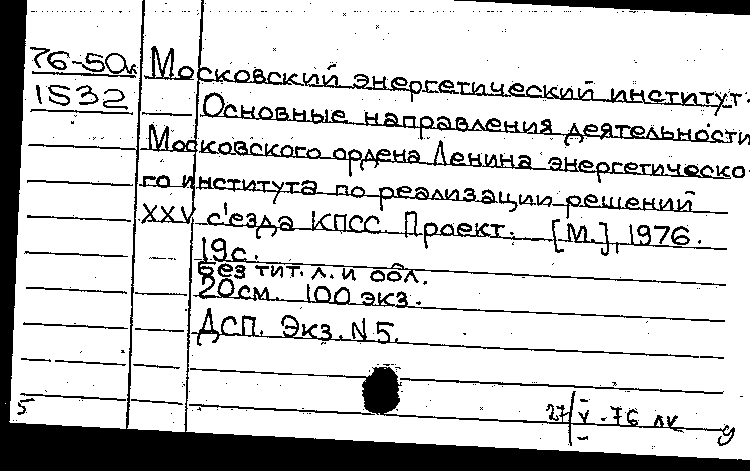 76-50к Московский энергетический институт.
1532 Основные направления деятельности
Московского ордена Ленина энергетическо-
го института по реализации решений
XXV с'езда КПСС. Проект. [М.], 1976.
19с.
Без тит. л. и обл.
20см. 100 экз.
ДСП. Экз. N 5.
27/V-76 лк
5